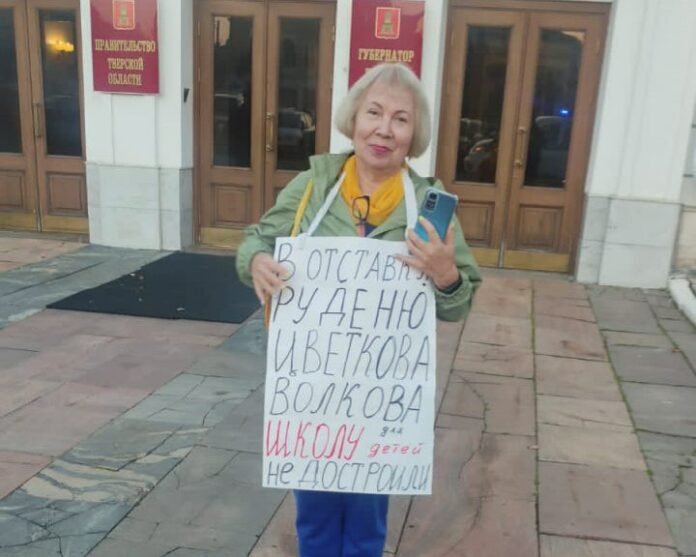 ПРАВИТЕЛЬСТВО
ТВЕРСКОЙ
ОБЛАСТИ
ГУБЕРНАТОР
В ОТСТАВКУ
РУДЕНЮ
ЦВЕТКОВА
ВОЛКОВА
ШКОЛУ для детей
НЕ ДОСТРОИЛИ